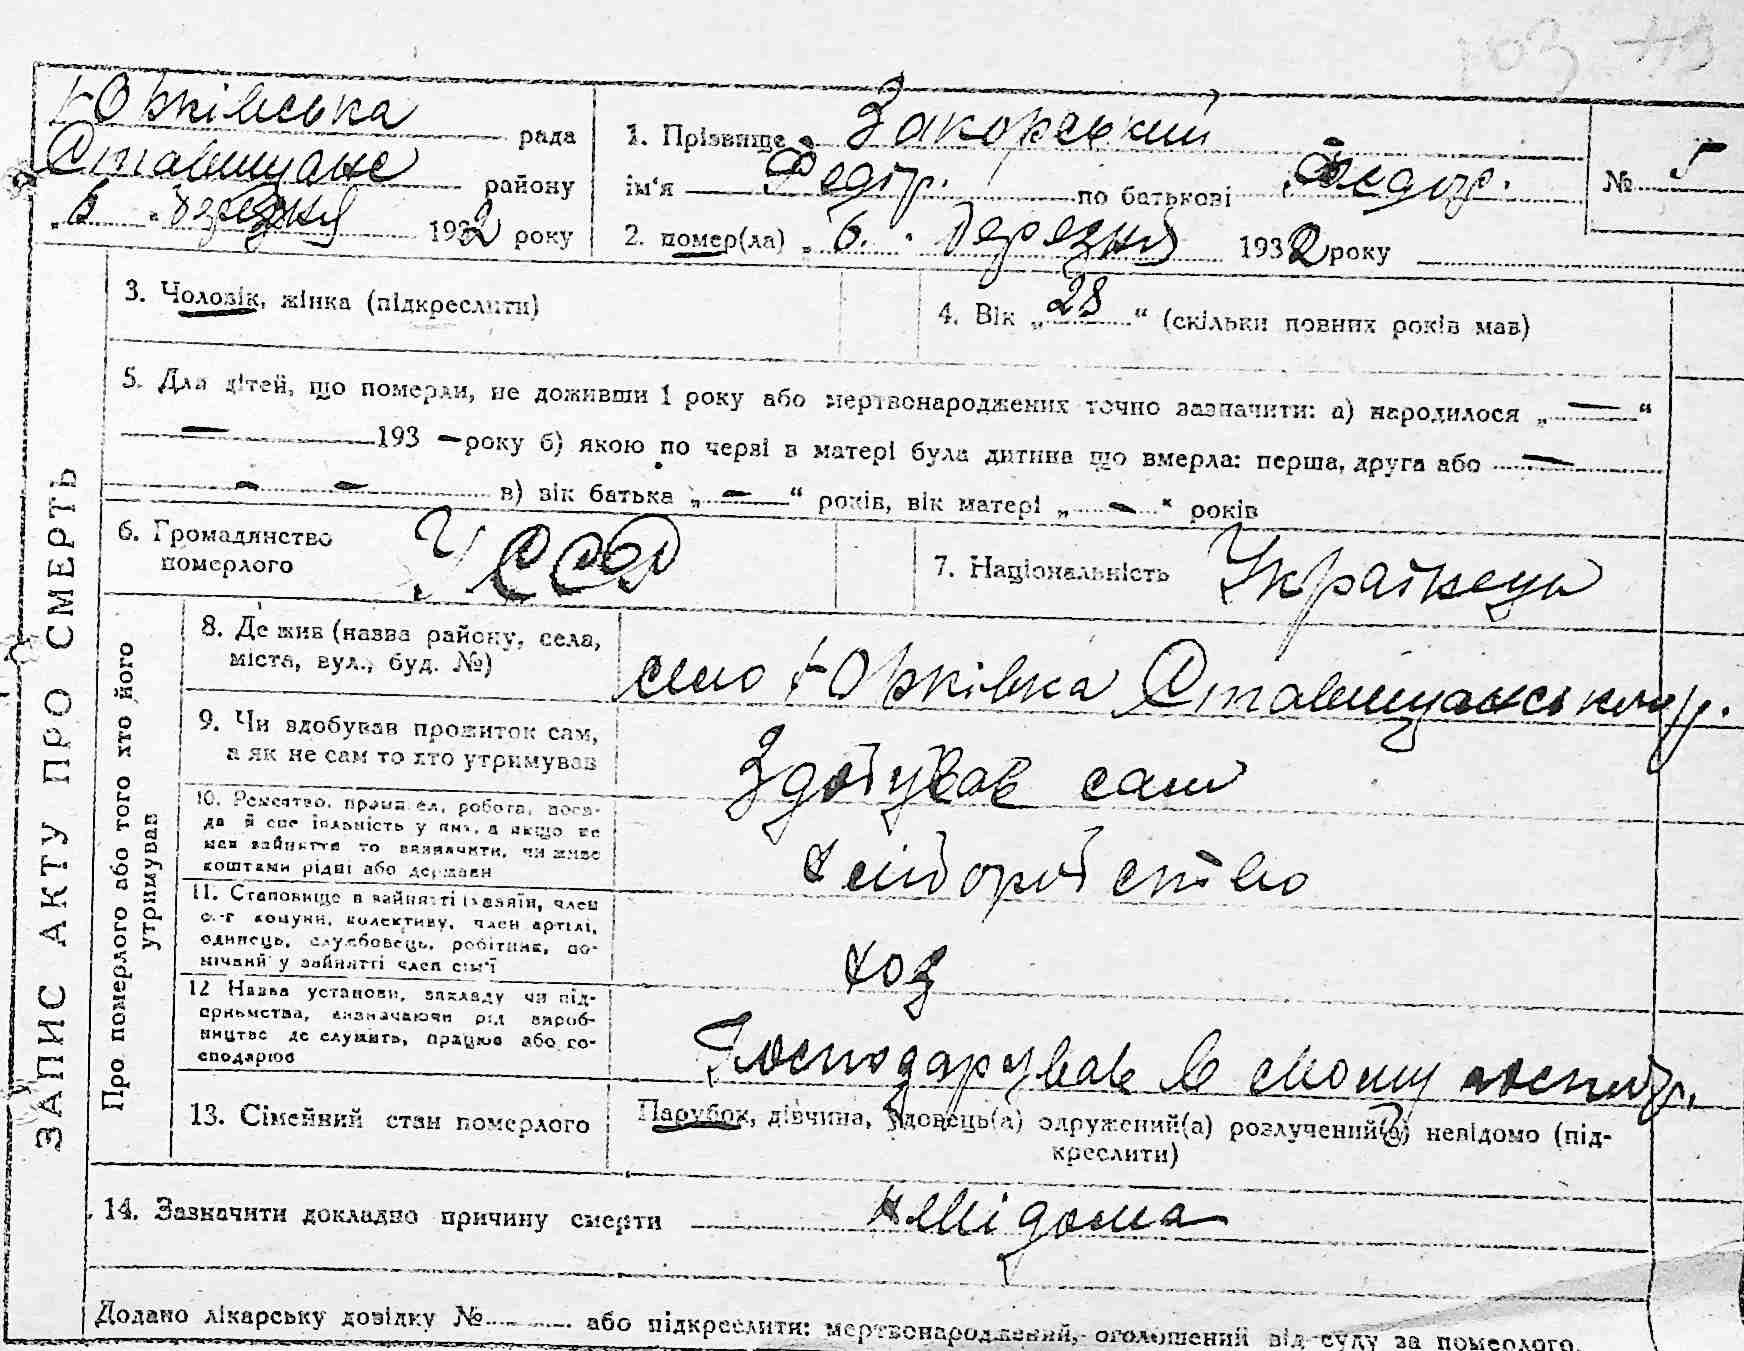 103
Юрківська рада
Ставищанс району
„ 6 „ березня 1932 року
1. Прізвище Закорський
ім'я Федір. по батькові Федор.
2. помер(ла) „ 6. " березня 1932 року
№ 5
3. Чоловік, жінка (підкреслити)
4. Вік „ 28 “ (скільки повних років мав)
5. Для дітей, що померли, не доживши 1 року або мертвонароджених точно зазначити: а) народилося „ — “
— 193 — року б) якою по черзі в матері була дитина що вмерла: перша, друга або —
— — в) вік батька „ — “ років, вік матері „ — “ років
6. Громадянство
померлого
УССР
7. Національність Українець
ЗАПИС АКТУ ПРО СМЕРТЬ
Про померлого або того хто його
утримував
8. Де жив (назва району, села,
міста, вул., буд. №)
село Юрківка Ставищанського р.
9. Чи здобував прожиток сам,
а як не сам то хто утримував
Здобував сам
10. Ремество, промисел, робота, поса-
да й спеціяльність у них, а якщо не
мав зайняття то зазначити, чи живе
коштами рідні або держави
хліборобство
11. Становище в зайнятті (хазяїн, член
с.-г комуни, колективу, член артілі,
одинець, службовець, робітник, по-
мічний у зайнятті член сім'ї
хоз
12 Назва установи, закладу чи під-
приємства, визначаючи рід вироб-
ництва де служить, працює або го-
сподарює
Господарував в свому господ.
13. Сімейний стан померлого
Парубок, дівчина, вдовець(а) одружений(а) розлучений(а) невідомо (під-
креслити)
14. Зазначити докладно причину смерти невідома
Додано лікарську довідку № або підкреслити: мертвонароджений, оголошений від суду за померлого.